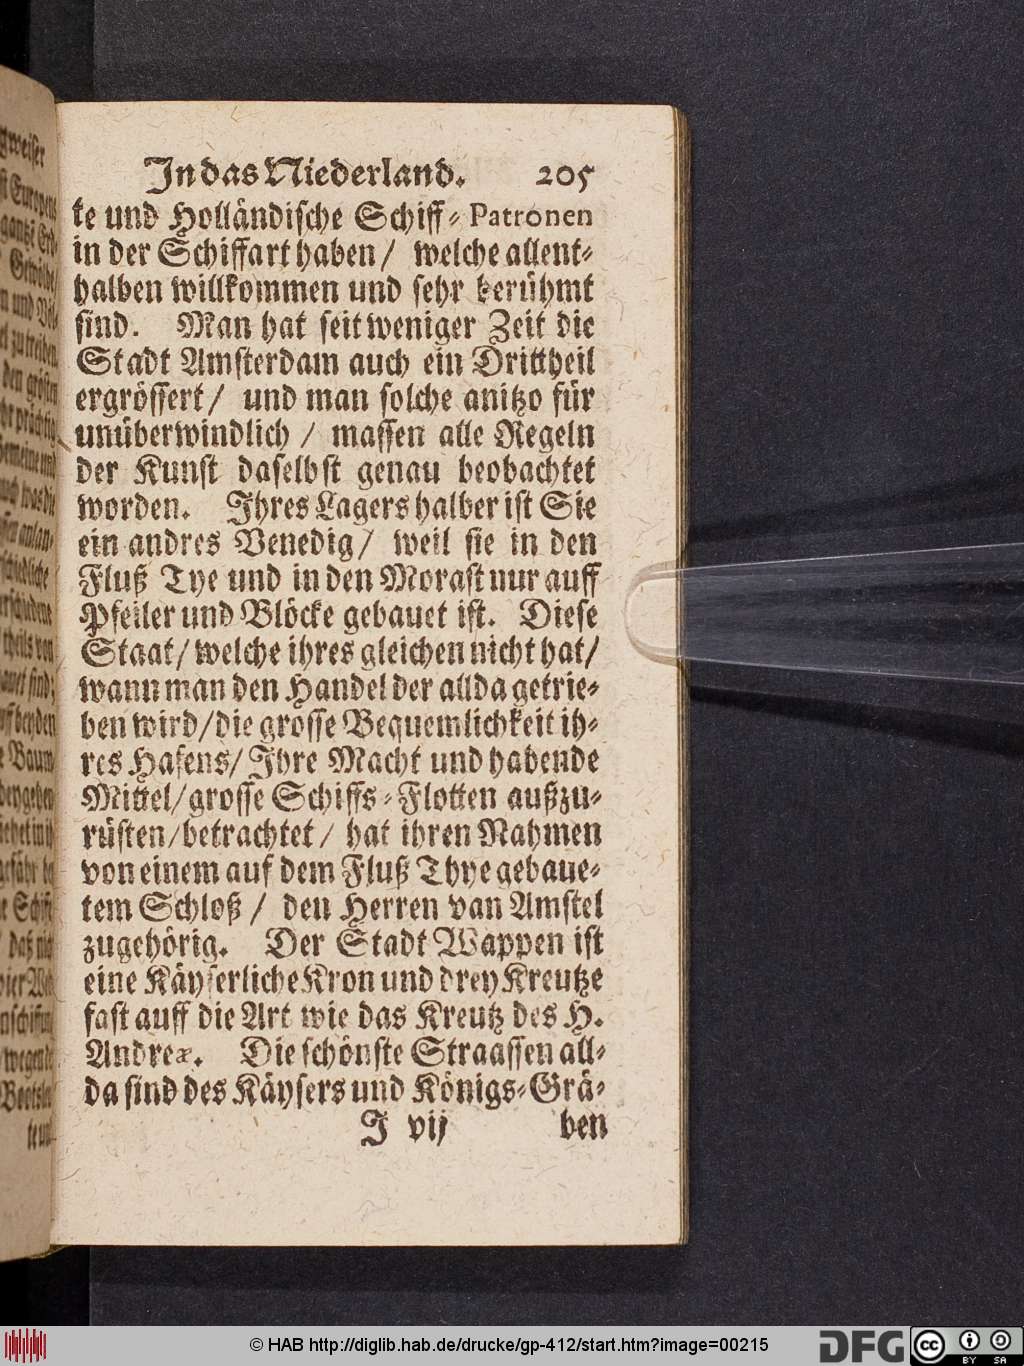 In das Niederland. 205
te und Holländische Schiff-Patronen
in der Schiffart haben / welche allent-
halben willkommen und sehr berühmt
sind. Man hat seit weniger Zeit die
Stadt Amsterdam auch ein Drittheil
ergrössert / und man solche anitzo für
unüberwindlich / massen alle Regeln
der Kunst daselbst genau beobachtet
worden. Ihres Lagers halber ist Sie
ein andres Venedig / weil sie in den
Fluß Tye und in den Morast nur auff
Pfeiler und Blöcke gebauet ist. Diese
Staat / welche ihres gleichen nicht hat /
wann man den Handel der allda getrie-
ben wird / die grosse Bequemlichkeit ih-
res Hafens / Ihre Macht und habende
Mittel / grosse Schiffs-Flotten außzu-
rüsten / betrachtet / hat ihren Nahmen
von einem auf dem Fluß Thye gebaue-
tem Schloß / den Herren van Amstel
zugehörig. Der Stadt Wappen ist
eine Käyserliche Kron und drey Kreutze
fast auff die Art wie das Kreutz des H.
Andreæ. Die schönste Straassen all-
da sind des Käysers und Königs-Grä-
I vij ben
© HAB http://diglib.hab.de/drucke/gp-412/start.htm?image=00215
DFG
cc
BY SA